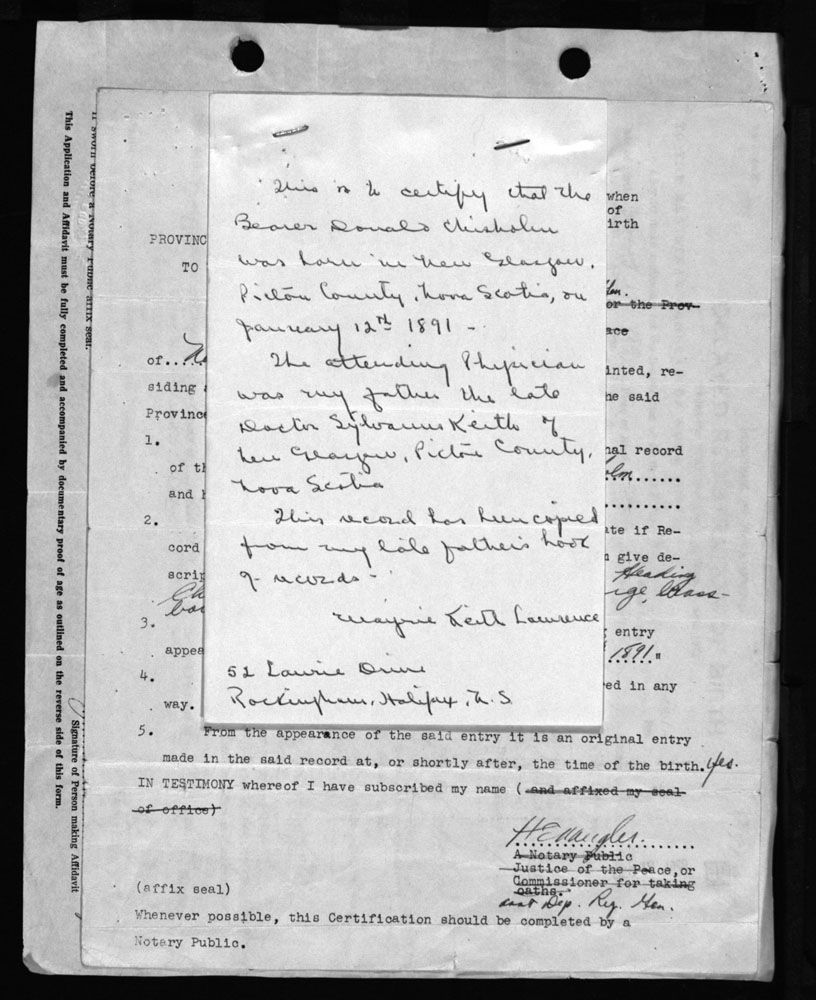 This is to certify that the
Bearer Donald Chisholm
was born in New Glasgow,
Pictou County, Nova Scotia, on
January 12th 1891 -
The attending Physician
was my father the late
Doctor Sylvanus Keith of
New Glasgow, Pictou County,
Nova Scotia
This record has been copied
from my late father's book
of records -
Maynie Keith Lawrence
52 Laurie Drive
Rockingham, Halifax, N.S.
when
of
irth
PROVINC
TO
or the Prov-
ace
of....
inted, re-
siding
he said
Province
1.
nal record
of th
and
2.
ate if Re-
cord
give de-
scrip
Heading
Class-
3.
entry
appea
1891"
4.
ed in any
way.
5. From the appearance of the said entry it is an original entry
made in the said record at, or shortly after, the time of the birth. Yes.
IN TESTIMONY whereof I have subscribed my name ( and affixed my seal
of office)
A Notary Public
Justice of the Peace, or
Commissioner for taking
oaths.
Dep. Reg. Gen.
(affix seal)
Whenever possible, this Certification should be completed by a
Notary Public.
If sworn before a Notary Public affix seal.
This Application and Affidavit must be fully completed and accompanied by documentary proof of age as outlined on the reverse side of this form.
Signature of Person making Affidavit